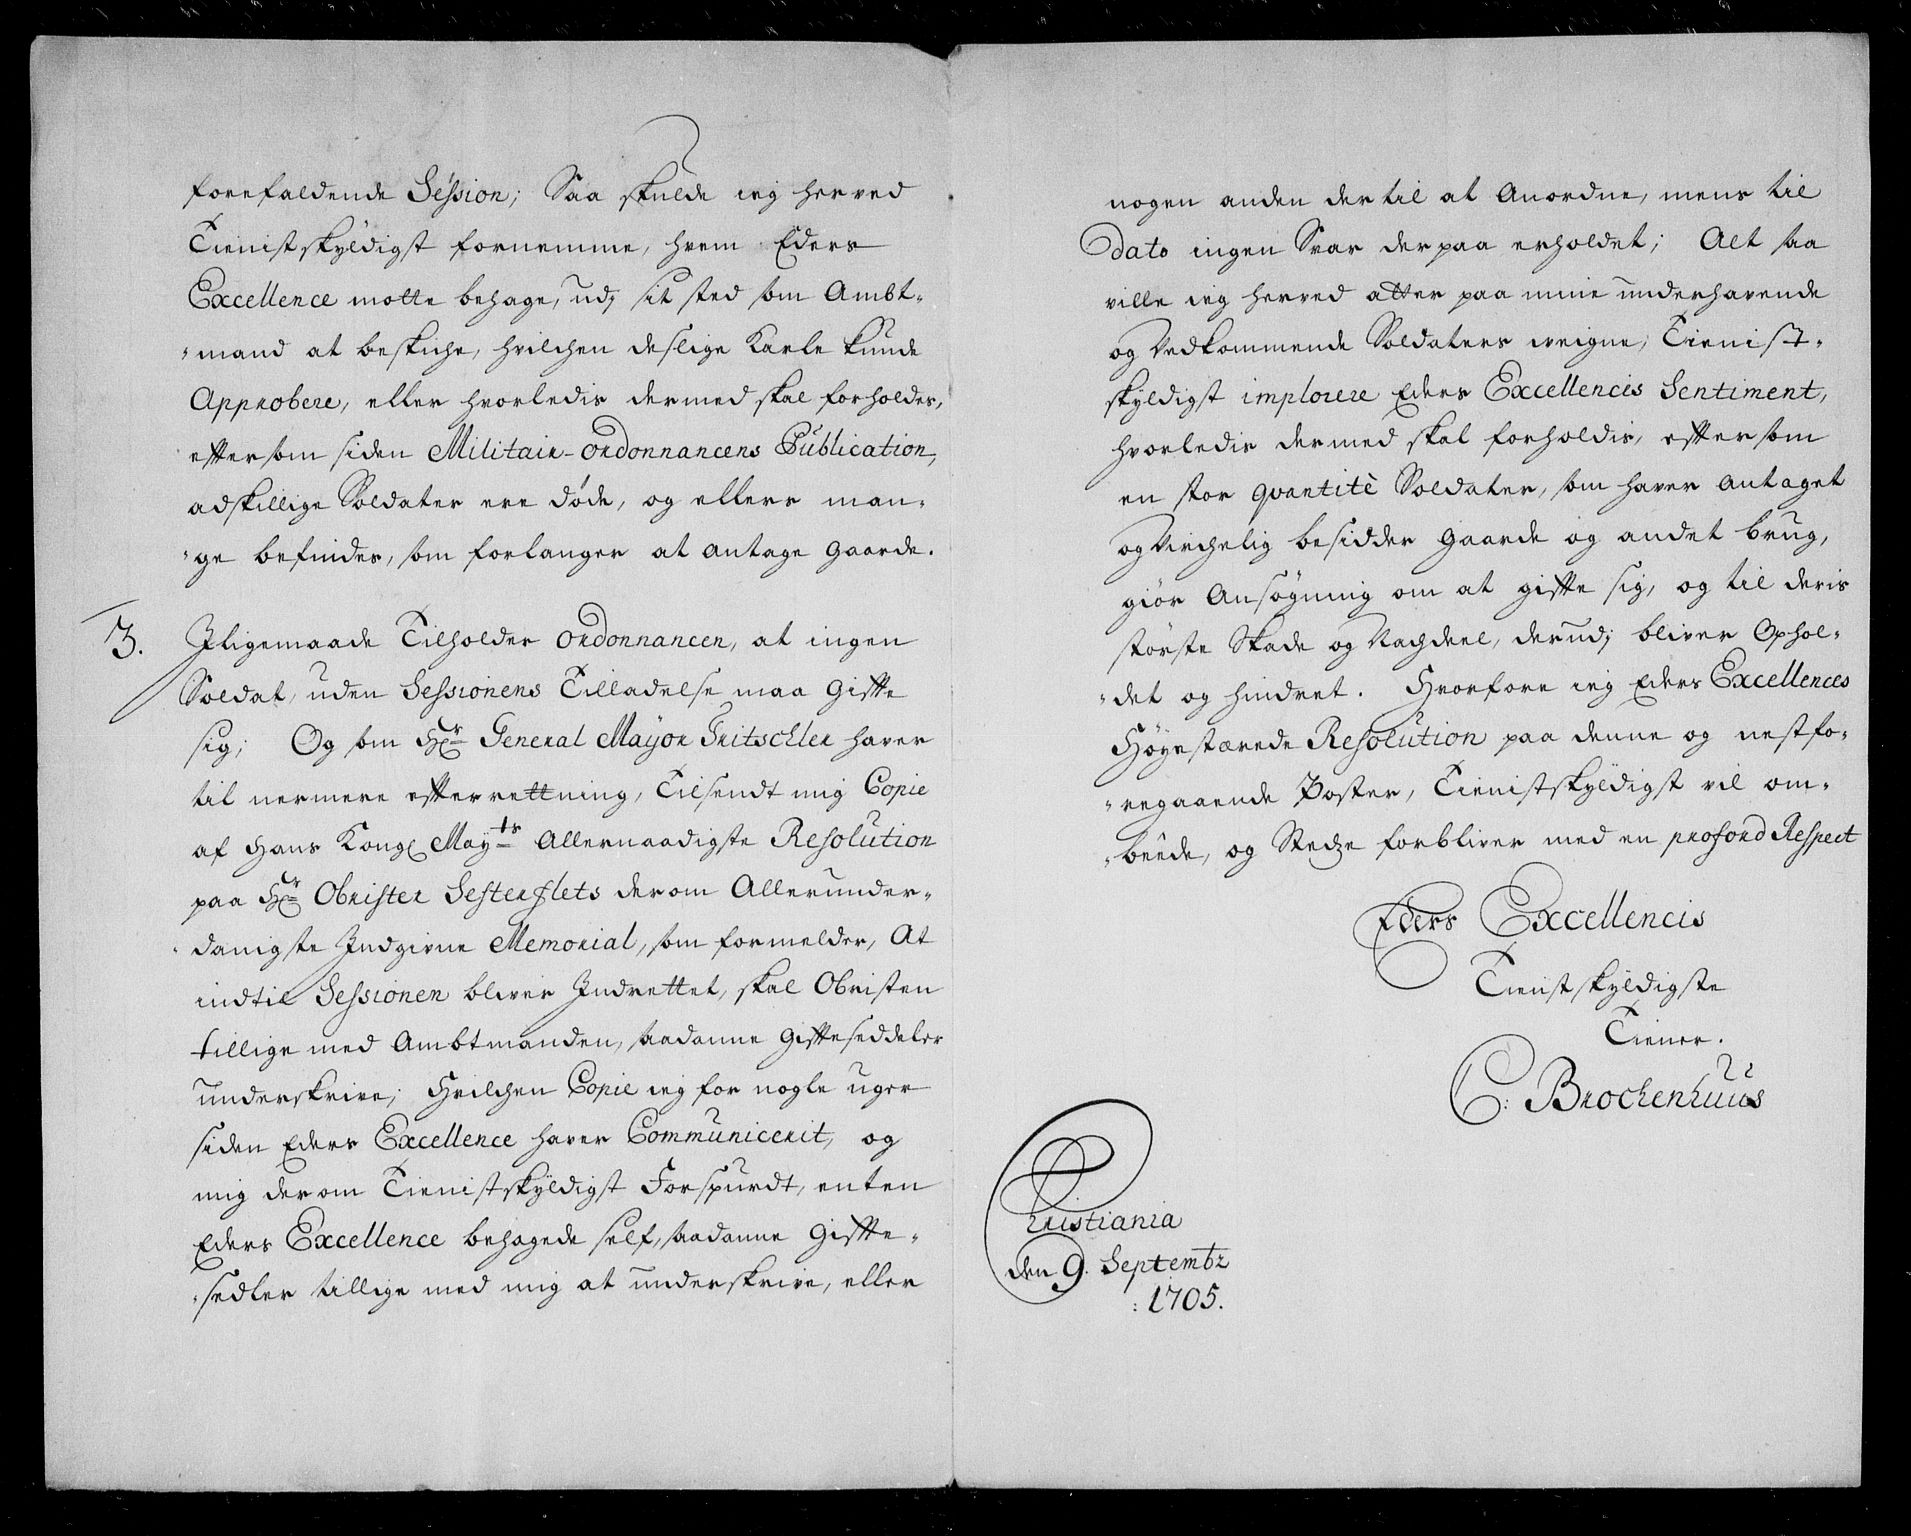 forefaldende Session; Saa skulde ieg herved
Tienistskyldigst fornemme, hvem Eders
Excellence motte behage, udj sit sted som Ambt-
mand at beskiche, hvilchen deslige Karle kunde
Approbere, eller hvorledis dermed skal forholdes,
eftersom siden Militair-ordonnancens Publication,
adskillige Soldater ere døde, og ellers man-
ge befindes, som forlanger at antage gaarde.
3. Iligemaade Tilholder ordonnancen, at ingen
Soldat, uden Sessionens Tilladelse maa Gifte
sig; Og som Hr General Mayor Tritschler haver
til nermere efterrettning, Tilsendt mig Copie
af Hans Kongl Mayts Allernaadigste Resolution
paa Hr Obrister Sesterflets derom Allerunder-
danigste Indgivne Memorial, som formelder, At
indtil Sessionen bliver Indrettet, skal Obristen
tillige med Ambtmanden, saadanne Gifteseddeler
underskrive; Hvilchen Copie ieg for nogle uger
siden Eders Excellence haver Communicerit, og
mig derom Tienistskyldigst Forspurdt, enten
Eders Excellence behagede self, saadanne Gifte-
sedler tillige med mig at underskrive, eller
nogen anden der til at Anordne, mens til
dato ingen Svar derpaa erholdet; Alt saa
ville ieg herved atter paa mine underhavende
og Vedkommende Soldaters weigne, Tienist-
skyldigst implorere Eders Excellencis Sentiment,
hvorledis dermed skal forholdis, eftersom
en stor qvantitè Soldater, som haver Antaget
og Virchelig besidder Gaarde og andet brug,
giør Ansøgning om at gifte sig, og til deris
største Skade og Nachdeel, derudj bliver Ophol-
det og hindret. Hvorfore ieg Eders Excellences
Høystærede Resolution paa denne og nestfo-
regaaende Poster, Tienistskyldigst vil om-
beede, og Stedze forbliver med en profond Respect
Eders Excellencis
Tienstskyldigste
Tiener.
C: Brochenhuus
Christiania
den 9. Septembr
: 1705.